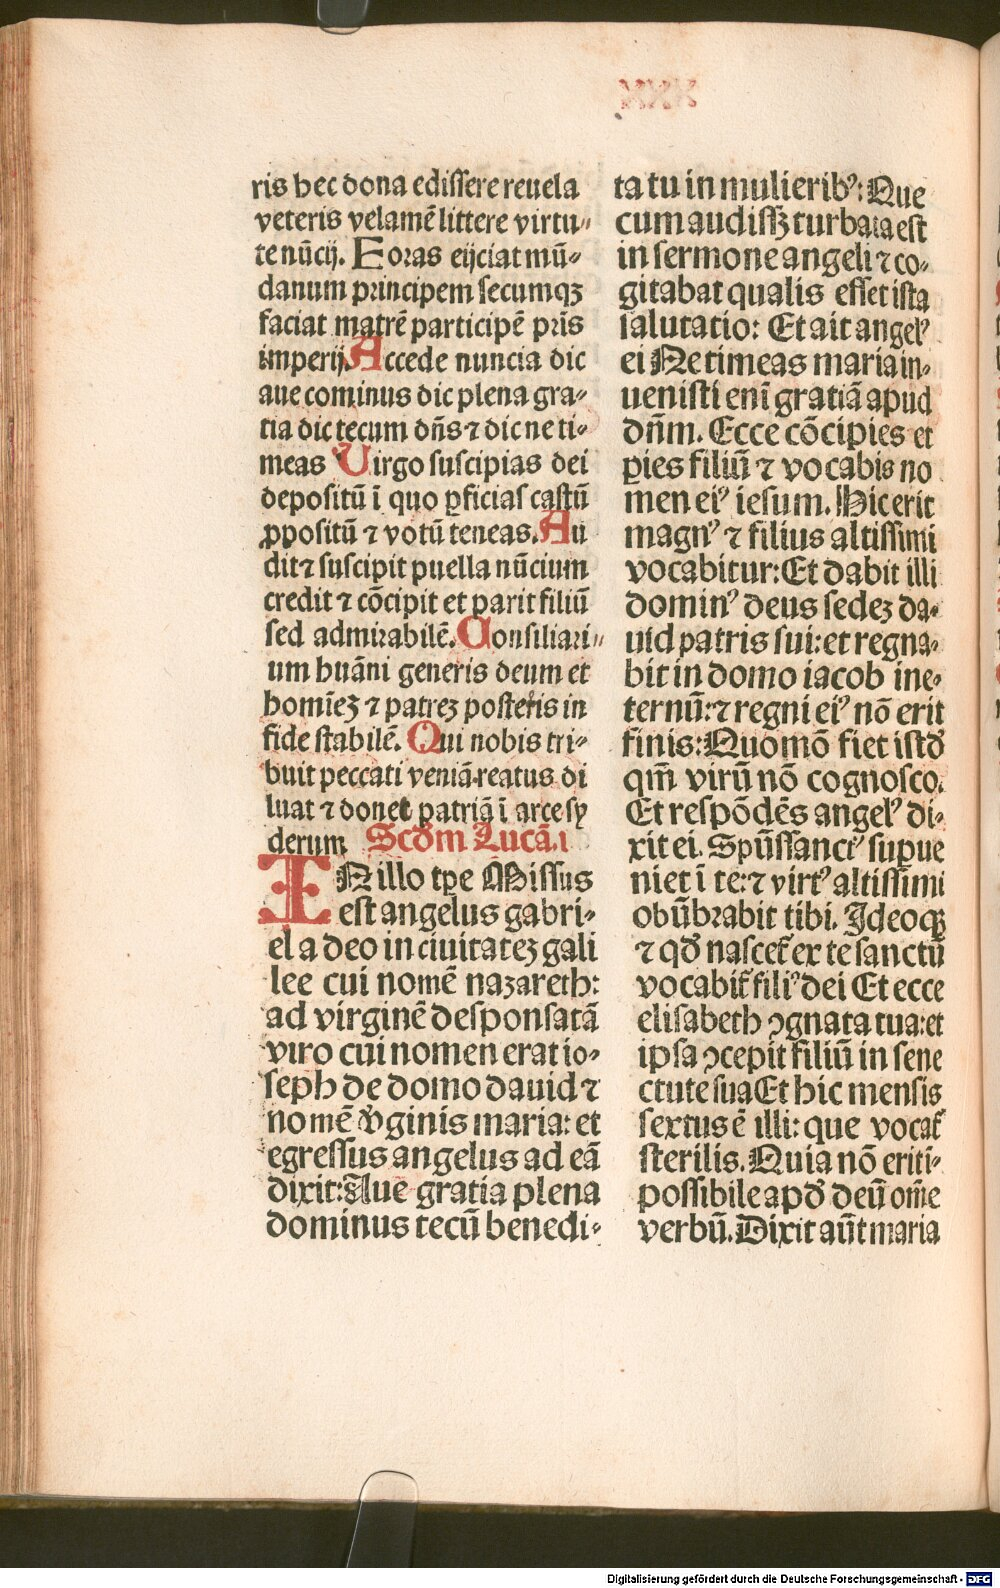 ris hec dona edissere reuela
veteris velamē littere virtu⸗
te nūcij. Foras eijciat mū⸗
danum principem secumqꝫ
faciat matrē participē pr̄is
imperij. Accede nuncia dic
aue cominus dic plena gra⸗
tia dic tecum dn̄s ⁊ dic ne ti⸗
meas Uirgo suscipias dei
depositū ī quo ꝑficias castū
ꝓpositū ⁊ votū teneas. Au
dit ⁊ suscipit puella nūcium
credit ⁊ cōcipit et parit filiū
sed admirabilē. Consiliari⸗
um huāni generis deum et
homīeꝫ ⁊ patreꝫ posteris in
fide stabilē. Qui nobis tri⸗
buit peccati veniā.reatus di
luat ⁊ donet patriā ī arce sy
derum Scd̄m Lucā.i
IN illo tꝑe Missus
est angelus gabri⸗
el a deo in ciuitateꝫ gali
lee cui nomē nazareth:
ad virginē desponsatā
viro cui nomen erat io⸗
seph de domo dauid ⁊
nomē v̄ginis maria: et
egressus angelus ad eā
dixit: Aue gratia plena
dominus tecū benedi⸗
ta tu in mulieribꝰ: Que
cum audissꝫ turbata est
in sermone angeli ⁊ co⸗
gitabat qualis esset ista
salutatio: Et ait angelꝰ
ei Ne timeas maria in⸗
uenisti enī gratiā apud
dn̄m. Ecce cōcipies et
ꝑies filiū ⁊ vocabis no
men eiꝰ iesum. Hic erit
magnꝰ ⁊ filius altissimi
vocabitur: Et dabit illi
dominꝰ deus sedeꝫ da⸗
uid patris sui: et regna⸗
bit in domo iacob in e⸗
ternū: ⁊ regni eiꝰ nō erit
finis: Quomō fiet istd̄
qm̄ virū nō cognosco.
Et respōdēs angelꝰ di⸗
xit ei. Spūssanctꝰ supue
niet ī te: ⁊ virtꝰ altissimi
obūbrabit tibi. Ideoqꝫ
⁊ qd̄ nascet̄ ex te sanctū
vocabit̄ filiꝰ dei Et ecce
elisabeth ꝯgnata tua: et
ipsa ꝯcepit filiū in sene
ctute sua Et hic mensis
sextus ē illi: que vocat̄
sterilis. Quia nō erit i⸗
possibile apd̄ deū om̄e
verbū. Dixit aūt maria
Digitalisierung gefördert durch die Deutsche Forschungsgemeinschaft - DFG